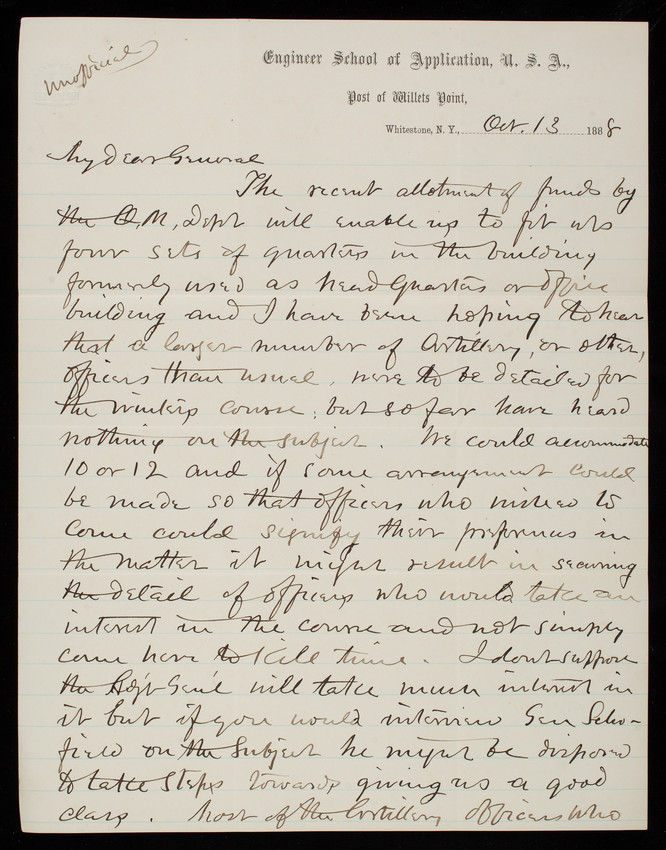 unofficial
Engineer School of Application, U. S. A.,
Post of Willets Point,
Whitestone, N. Y., Oct. 13 1888
My Dear General
The recent allotment of funds by
the Q. M. Dept will enable us to fit up
four sets of quarters in the building
formerly used as head Quarters or office
building and I have been hoping to hear
that a larger number of Artillery, or other,
officers than usual, were to be detailed for
the winters course; but so far have heard
nothing on the subject. We could accommodate
10 or 12 and if some arrangement could
be made so that officers who wished to
come could signify their preferences in
the matter it might result in securing
the detail of officers who would take an
interest in the course and not simply
come here to kill time. I dont suppose
the Adj't Gen'l will take much interest in
it but if you would interview Gen Scho-
field on the subject he might be disposed
to take steps towards giving us a good
class. Most of the Artillery officers who